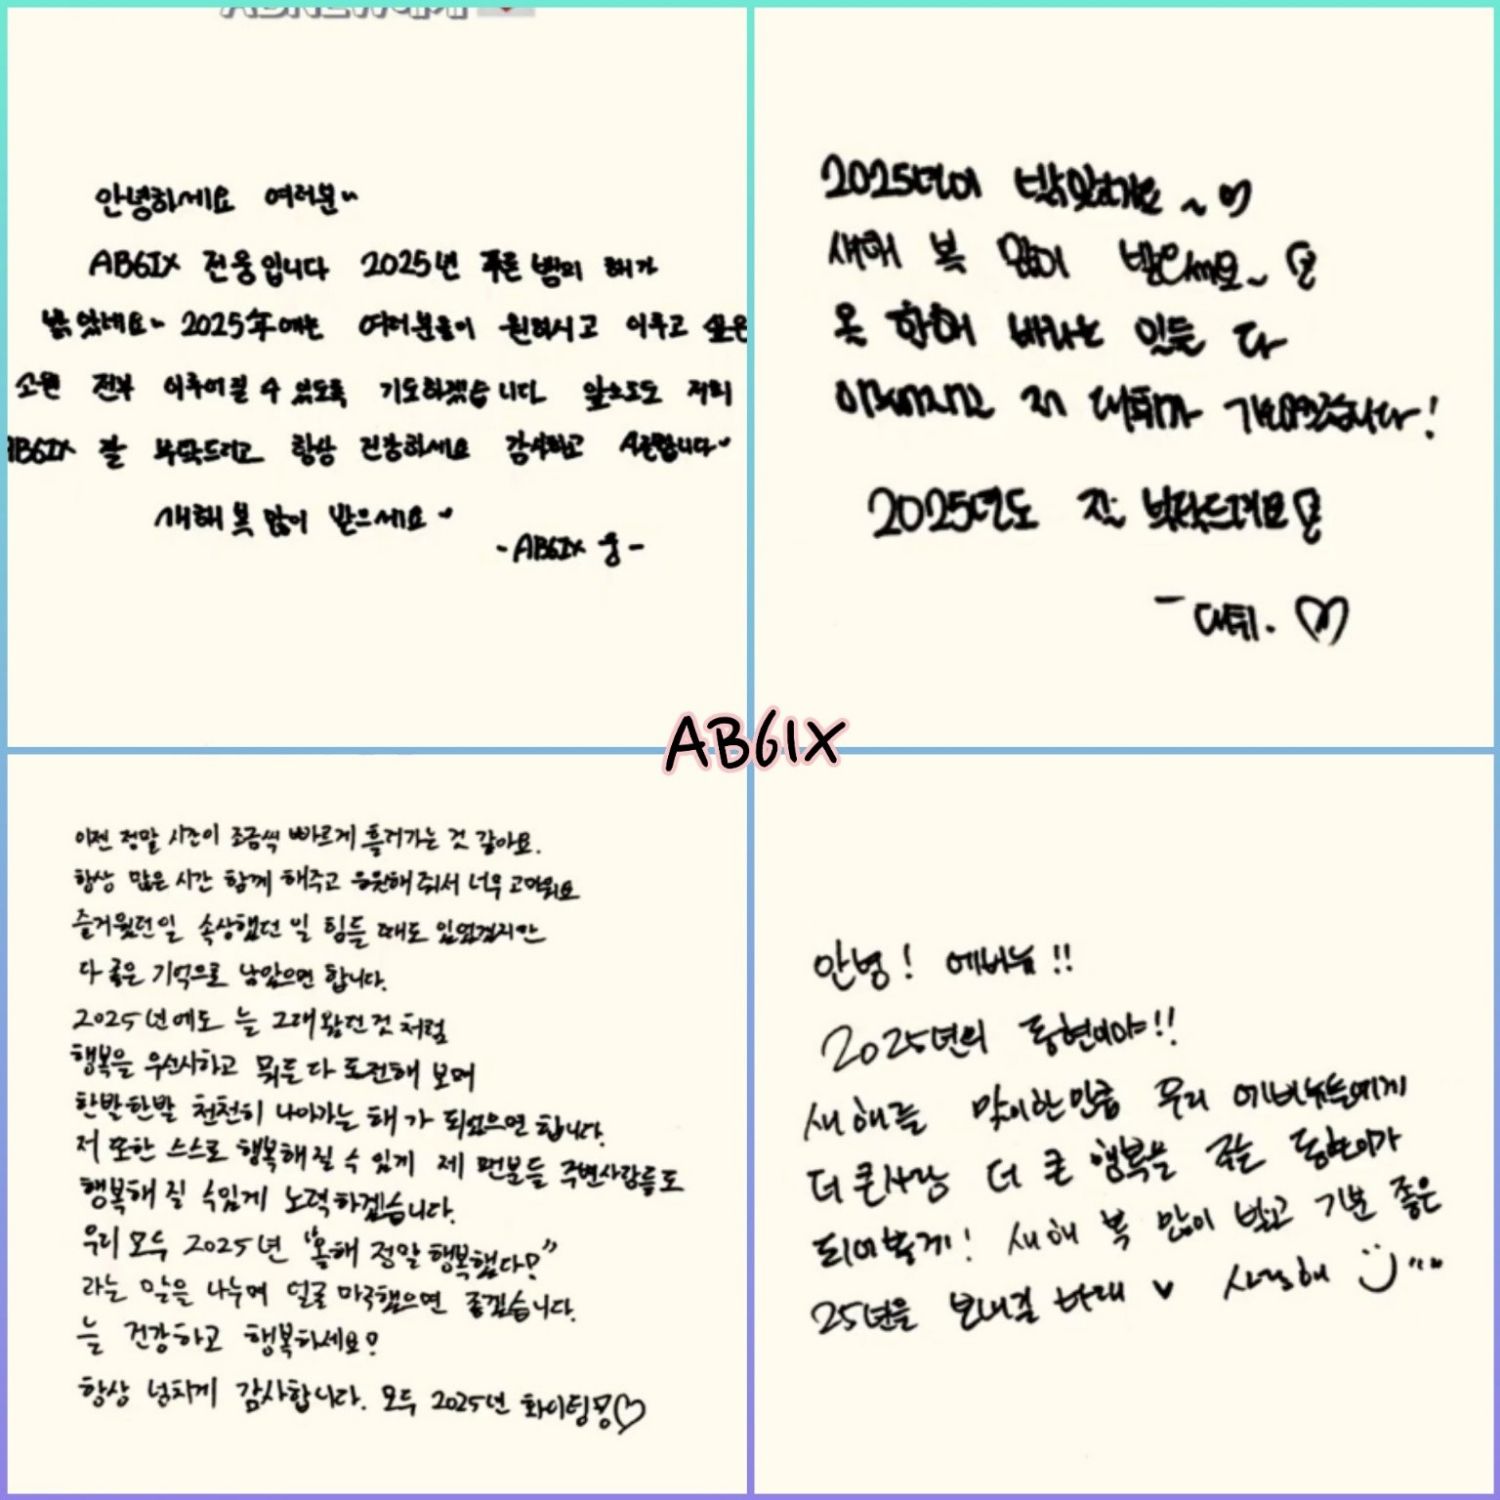 안녕하세요 여러분~
AB6IX 전웅입니다 2025년 푸른 뱀의 해가
밝았네요~ 2025年에는 여러분들이 원하시고 이루고 싶은
소원 전부 이루어질 수 있도록 기도하겠습니다. 앞으로도 저희
AB6IX 잘 부탁드리고 항상 건강하세요 감사하고 사랑합니다~
새해 복 많이 받으세요~
- AB6IX 웅 -
2025년이 밝았네요~♡
새해 복 많이 받으세요~
올 한해 바라는 일들 다
이뤄지길 저 대휘가 기도하겠습니다!
2025년도 잘 부탁드려요
- 대휘. ♡
AB6IX
이젠 정말 시간이 조금씩 빠르게 흘러가는 것 같아요.
항상 많은 시간 함께 해주고 응원해줘서 너무 고마워요
즐거웠던 일 속상했던 일 힘든 때도 있었겠지만
다 좋은 기억으로 남았으면 합니다.
2025년에도 늘 그래왔던것 처럼
행복을 우선시하고 뭐든 다 도전해 보며
한발한발 천천히 나아가는 해가 되었으면 합니다.
저 또한 스스로 행복해질 수 있게 제 팬분들 주변사람들도
행복해 질 수있게 노력하겠습니다.
우리 모두 2025년 "올해 정말 행복했다!"
라는 말을 나누며 얼굴 마주했으면 좋겠습니다.
늘 건강하고 행복하세요!
항상 넘치게 감사합니다. 모두 2025년 화이팅♡
안녕! 에비뉴!!
2025년의 동현이야!!
새해를 맞이한만큼 우리 에비뉴들에게
더 큰사랑 더 큰 행복을 주는 동현이가
되어볼게! 새해 복 많이 받고 기분 좋은
25년을 보내길 바래 ♥ 사랑해 :)